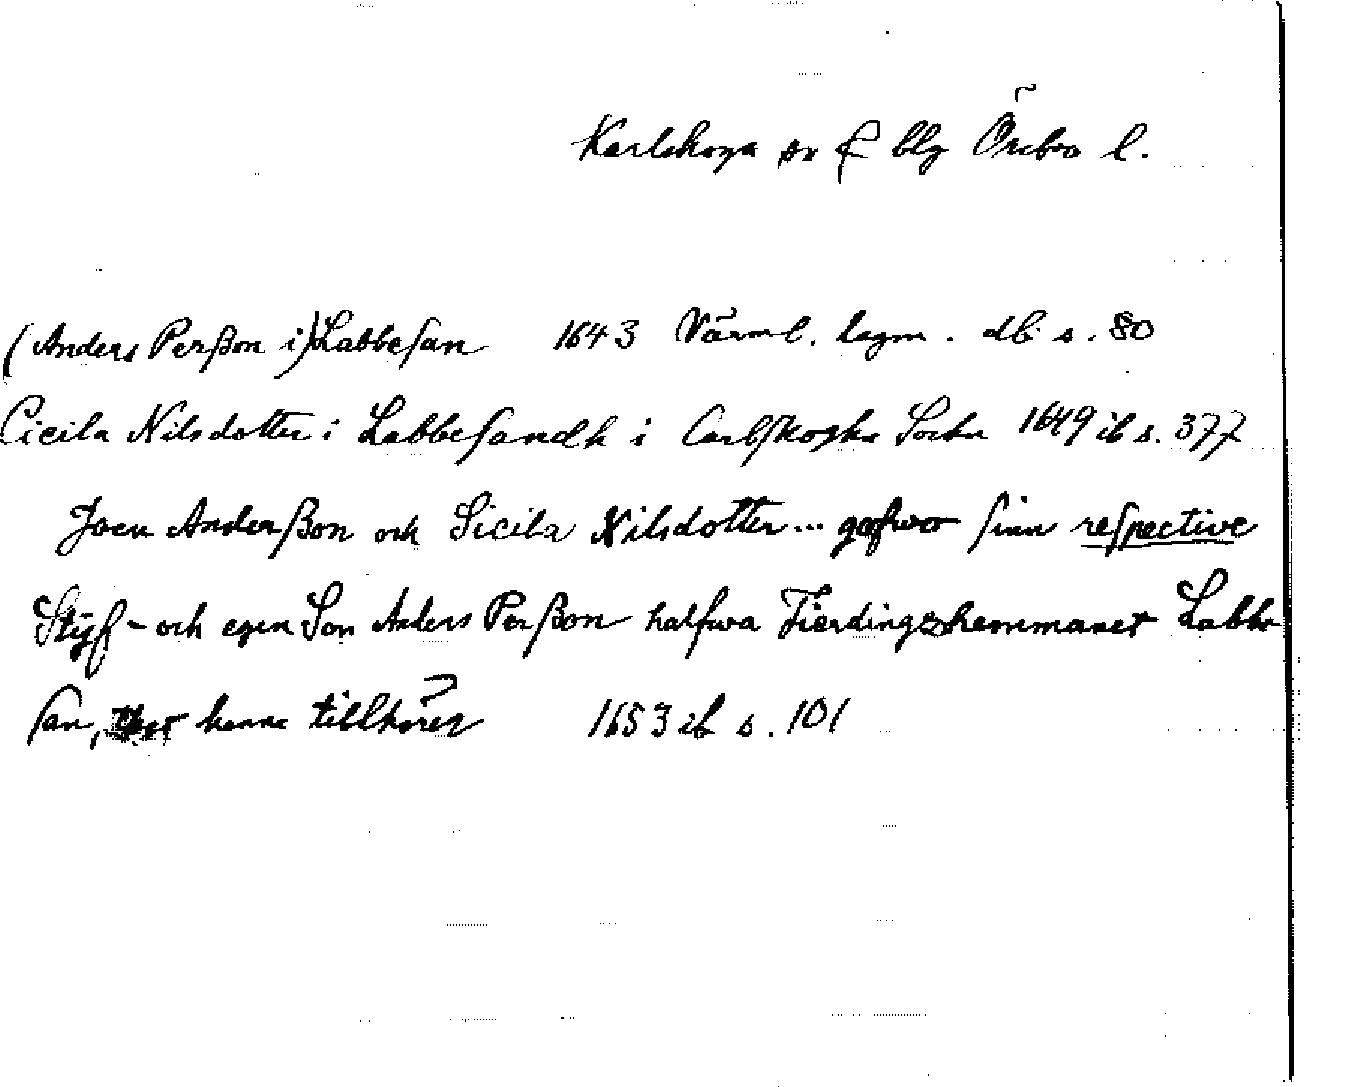 Karlskoga sn E blg Örebro l.
(Anders Perßon i) Labbesan 1643 Värml. lagm. db s. 80
Cicila Nilsdotter i Labbesandh i Carlskoga Sochn 1649 ib s. 377
Joen Anderßon och Sicila Nilsdotter... gofwo sinn respective
Styf- och egen Son Anders Perßon halfwa Fierdingzhemmanet Labbe
san, henne tillhörer 1653 ib s. 101